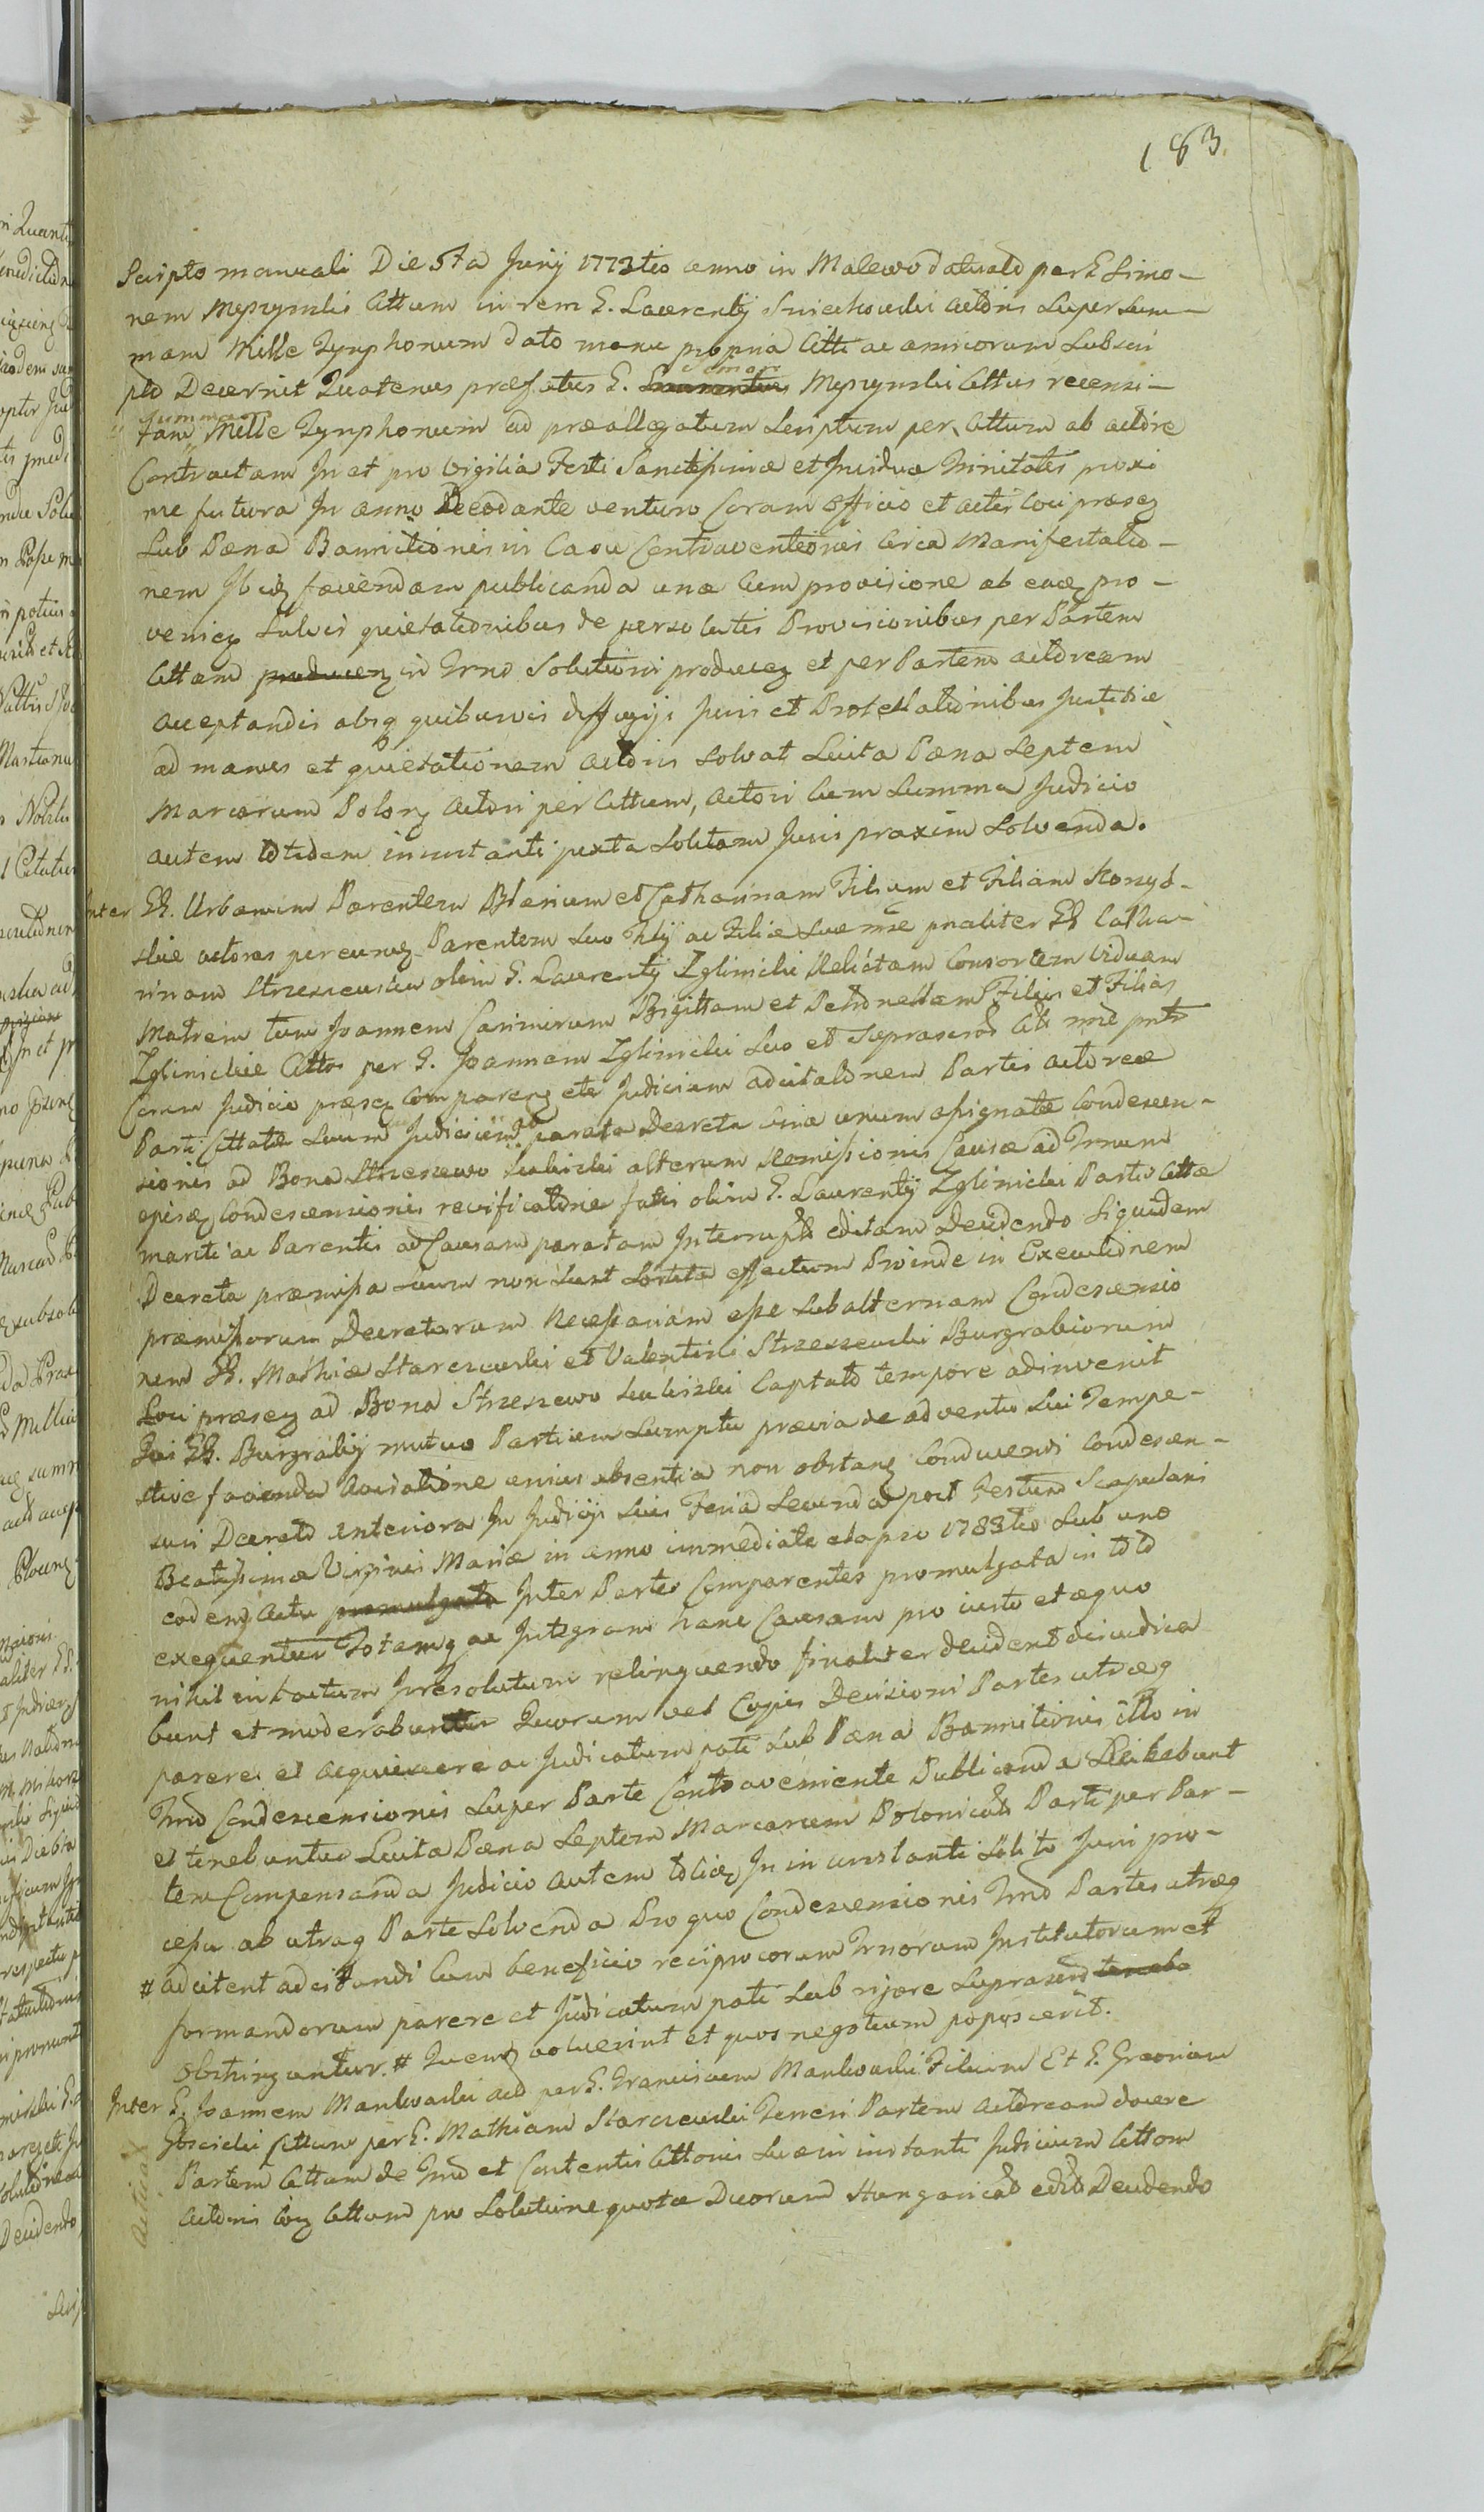 183.
Scripto manuali Die 5ta Junij 1773tio anno in Malewo datuato per E Simo-
nem Myszynski Cittum in rem E. Laurentij Sniechowski Actoris Super Sum-
mam Mille Tynphonum dato manu propria Citti ac amicorum Subscri
pto Decernit Quatenus præfatus E. Laurentius Simon Myszynski Cittus recensi-
tam Summam Mille Tynphonum ad præallegatum Scriptum per Cittum ab actore
Contractam In et pro Vigilia Festi Sanctissimæ et Individuæ Trinitatis proxi
me futura In anno Deo dante venturo Coram Officio et actis loci præseq
Sub Pœna Bannitionis in Casu Contraventionis Circa Manifestatio-
nem Ibidq faciendam publicanda una Cum provisione ab eaq pro-
venieq Salvis quietationibus de persolutis Provisionibus per Partem
Cittam produceq in Trno Solutionis produceq et per Partem actoream
acceptandis absq quibusvis diffugijs Juris et Protestationibus Justitiæ
ad manus et quietationem Actoris Solvat Luita Pœna Septem
Marcarum Polonq Actori per Cittum, Actori Cum Summa Judicio
autem totidem in instanti juxta Solitam Juris praxim Solvenda.
Inter EE. Urbanum Parentem Blasium et Catharinam Filium et Filiam
slie actores per eunq Parentem Suo Filij ac Filiæ Suæ nne pnaliter EE Catha-
rinam Strzeszewska olim E. Laurentij Zglinicki Relictam Consortem Viduam
Matrem tum Joannem Casimirum Brigittam et Petronellam Filios et Filias
Zglinickie Cittos per E. Joannem Zglinicki Suo et Suprascrod Citt nne pnte
Coram Judicio præseq Compareq etc Judicium ad citationem Partis actoreæ
Parti Cittatæ Suum Judicium parata Decreta Una unum assignatæ Condescen-
sionis ad Bona Strzeszewo alterum Remissionis Causæ ad Trnum
episæ Condescensionis revificationæ fatis olim E. Laurentij Zglinicki Partis Cittæ
mariti ac Parentis ad Causam paratam Interrupto editam Decidendo Siquidem
Decreta præmissa suum non Sunt Sortita effectum Proinde in Executionem
præmissorum Decretorum Necessariam esse Subalternam Condescensio
nem EE. Mathiæ Starczewski et Valentini Strzeszewski Burgrabiorum
Loci præseq ad Bona Strzeszewo Captato tempore adinvenit
Qui EE. Burgrabij mutuo Partium Sumptu prævia de adventu Sui Tempe-
stive facienda Aviatione unius absentia non obstanq Conducendi Condescen-
suri Decreto anteriora In Judicijs Suis Feria Secunda post Festum Scapularis
Beatissimæ Virginis Mariæ in anno immediate elapso 1783tio Sub uno
eodemq Actu promulgata Inter Partes Comparentes promulgata in toto
exequentur Totamq ac Integram hanc Causam pro iusto et æquo
nihil intactum Irresolutum relinquendo finaliter decident dijudica
bunt et moderabuntur Quorum vel Cujus Decisioni Partes utræq
parere et acquiescere ac Judicatum pati Sub Pœna Bannitionis illo in
Trno Condescensionis Super Parte Contraveniente Publicanda Debebunt
et tenebuntur Luita Pœna Septem Marcarum Polonicals Parti per Par-
tem Compensanda Judicio autem toties In instanti Solito Juris pro-
cessu ab utraq Parte Solvenda Pro quo Condescensionis Trno Partes utræq
# adcitent adcitandi Cum beneficio reciprocorum Trnorum Institutorum et
formandorum parere et Judicatum pati Sub rigore Suprascro tenebo
obstringuntur. # Quemq voluerint et quos negotium poposcerit.
Inter E. Joannem Mankowski act per E. Franciscum Mankowski Filium Et E. Gregorium
Gosciclu Cittum per E. Mathiam Starczewski Trneri Partem actoream docere
Partem Cittam de Trno et Contentis Cittonis Suæ in instanti Judicium Cittom
Actoris Coq Cittum pro Solutione quotæ Duorum Hungaricals edito Decidendo